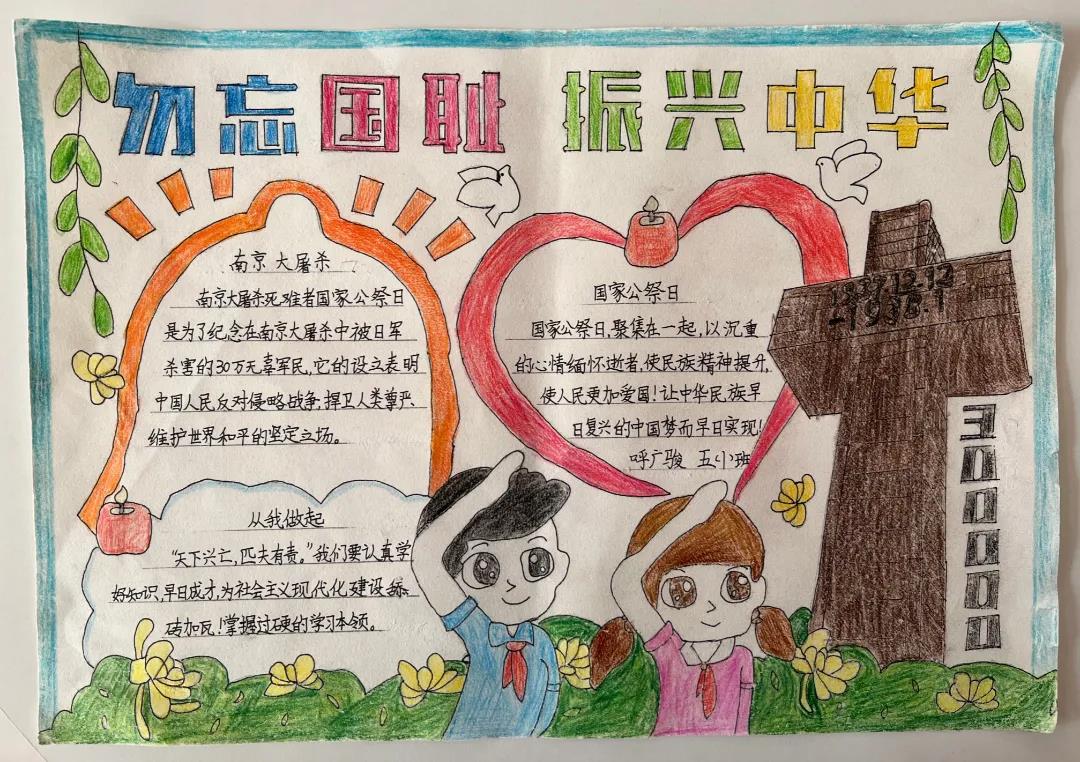 勿忘国耻 振兴中华
南京大屠杀
南京大屠杀死难者国家公祭日
是为了纪念在南京大屠杀中被日军
杀害的30万无辜军民,它的设立表明
中国人民反对侵略战争,捍卫人类尊严、
维护世界和平的坚定立场。
国家公祭日
国家公祭日,聚集在一起,以沉重
的心情缅怀逝者,使民族精神提升,
使人民更加爱国!让中华民族早
日复兴的中国梦而早日实现!
呼广骏 五(小)班
1937.12.12
-1938.1
300000
从我做起
“天下兴亡,匹夫有责。”我们要认真学
好知识,早日成才,为社会主义现代化建设添
砖加瓦!掌握过硬的学习本领。